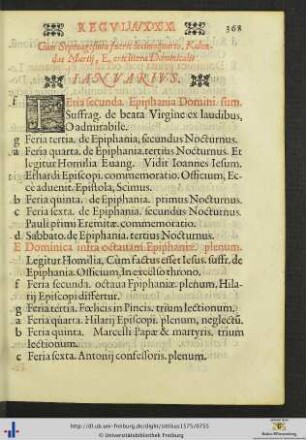 REGVLA XXXI.
368
Cum Septuagesima fuerit decimoquarto, Kalen-
das Martij, E, erit litera Dominicalis
IANVARIVS.
f FEria secunda. Epiphania Domini sum.
Suffrag. de beata Virgine ex laudibus,
O admirabile.
g Feria tertia. de Epiphania, secundus Nocturnus.
a Feria quarta. de Epiphania. tertius Nocturnus. Et
legitur Homilia Euang. Vidit Ioannes Iesum.
Erhardi Episcopi. commemoratio. Officium, Ec-
ce aduenit. Epistola, Scimus.
b Feria quinta. de Epiphania. primus Nocturnus.
c Feria sexta. de Epiphania. secundus Nocturnus.
Pauli primi Eremitæ. commemoratio.
d Sabbato. de Epiphania. tertius Nocturnus.
E Dominica infra octauam Epiphaniæ. plenum.
Legitur Homilia, Cum factus esset Iesus. suffr. de
Epiphania. Officium, In excelso throno.
f Feria secunda. octaua Epiphaniæ. plenum, Hila-
rij Episcopi differtur.
g Feria tertia. Fœlicis in Pincis. trium lectionum.
a Feria quarta. Hilarij Episcopi. plenum, neglectũ.
b Feria quinta. Marcelli Papæ & martyris, trium
lectionum.
c Feria sexta. Antonij confessoris. plenum.
http://dl.ub.uni-freiburg.de/diglit/sittilius1575/0755
© Universitätsbibliothek Freiburg
Baden-Württemberg